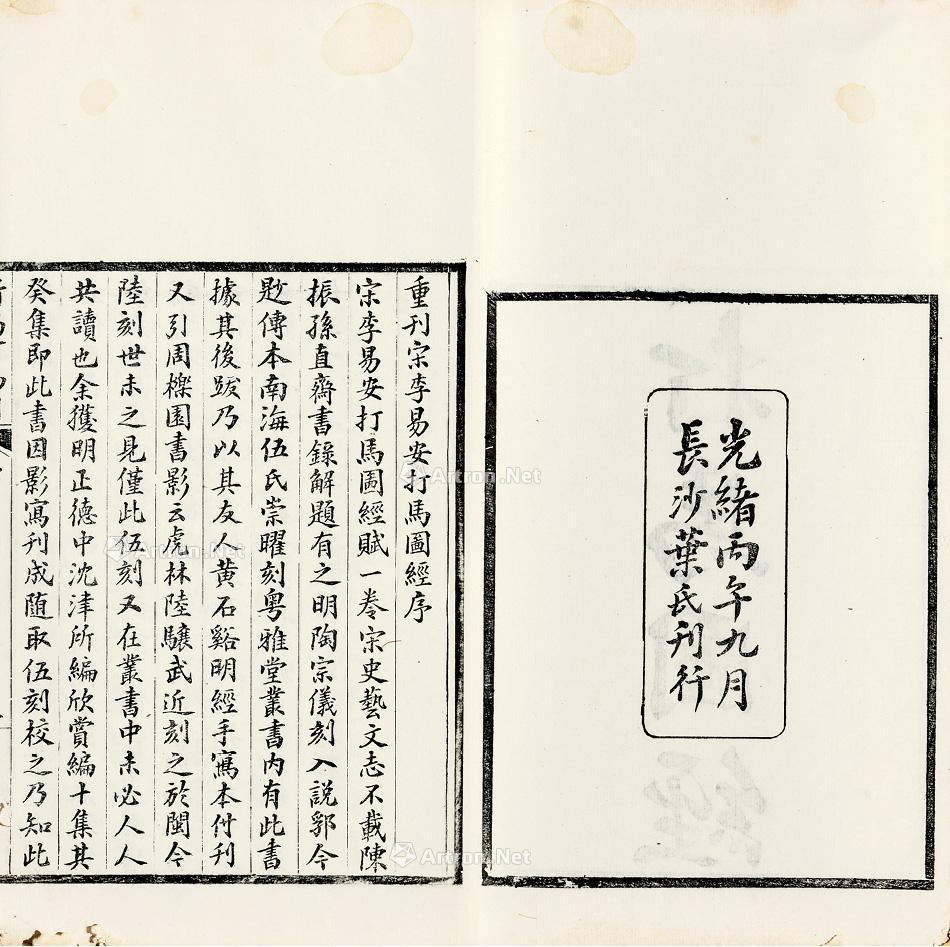 光緒丙午九月
長沙葉氏刊行
重刊宋李易安打馬圖經序
宋李易安打馬圖經賦一卷宋史藝文志不載陳
振孫直齋書錄解題有之明陶宗儀刻入說郛今
尟傳本南海伍氏崇曜刻粵雅堂叢書內有此書
據其後跋乃以其友人黃石谿明經手寫本付刊
又引周櫟園書影云虎林陸驤武近刻之於閩今
陸刻世未之見僅此伍刻又在叢書中未必人人
共讀也余獲明正德中沈津所編欣賞編十集其
癸集即此書因影寫刊成隨取伍刻校之乃知此
Artron.Net
Artron.Net
Artron.Net